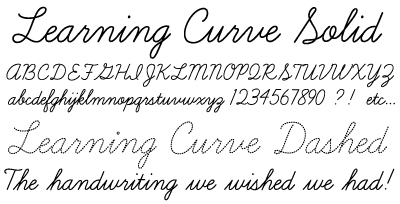 Learning Curve Solid
ABCDEFGHIJKLMNOPQRSTUVWXYZ
abcdefghijklmnopqrstuvwxyz 1234567890 ?! etc...
Learning Curve Dashed
The handwriting we wished we had!